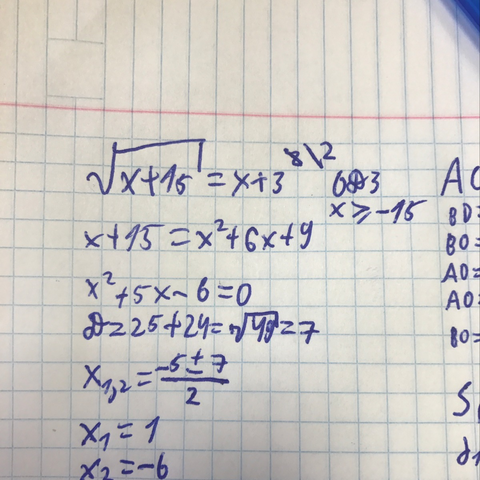 √x+15 = x+3 \2
x ≥ -15
x+15 = x²+6x+9
x²+5x-6=0
D=25+24=√49=7
x₁,₂ = -5±7
2
x₁ = 1
x₂ = -6
BD=
BO=
AO=
AO=
BO=